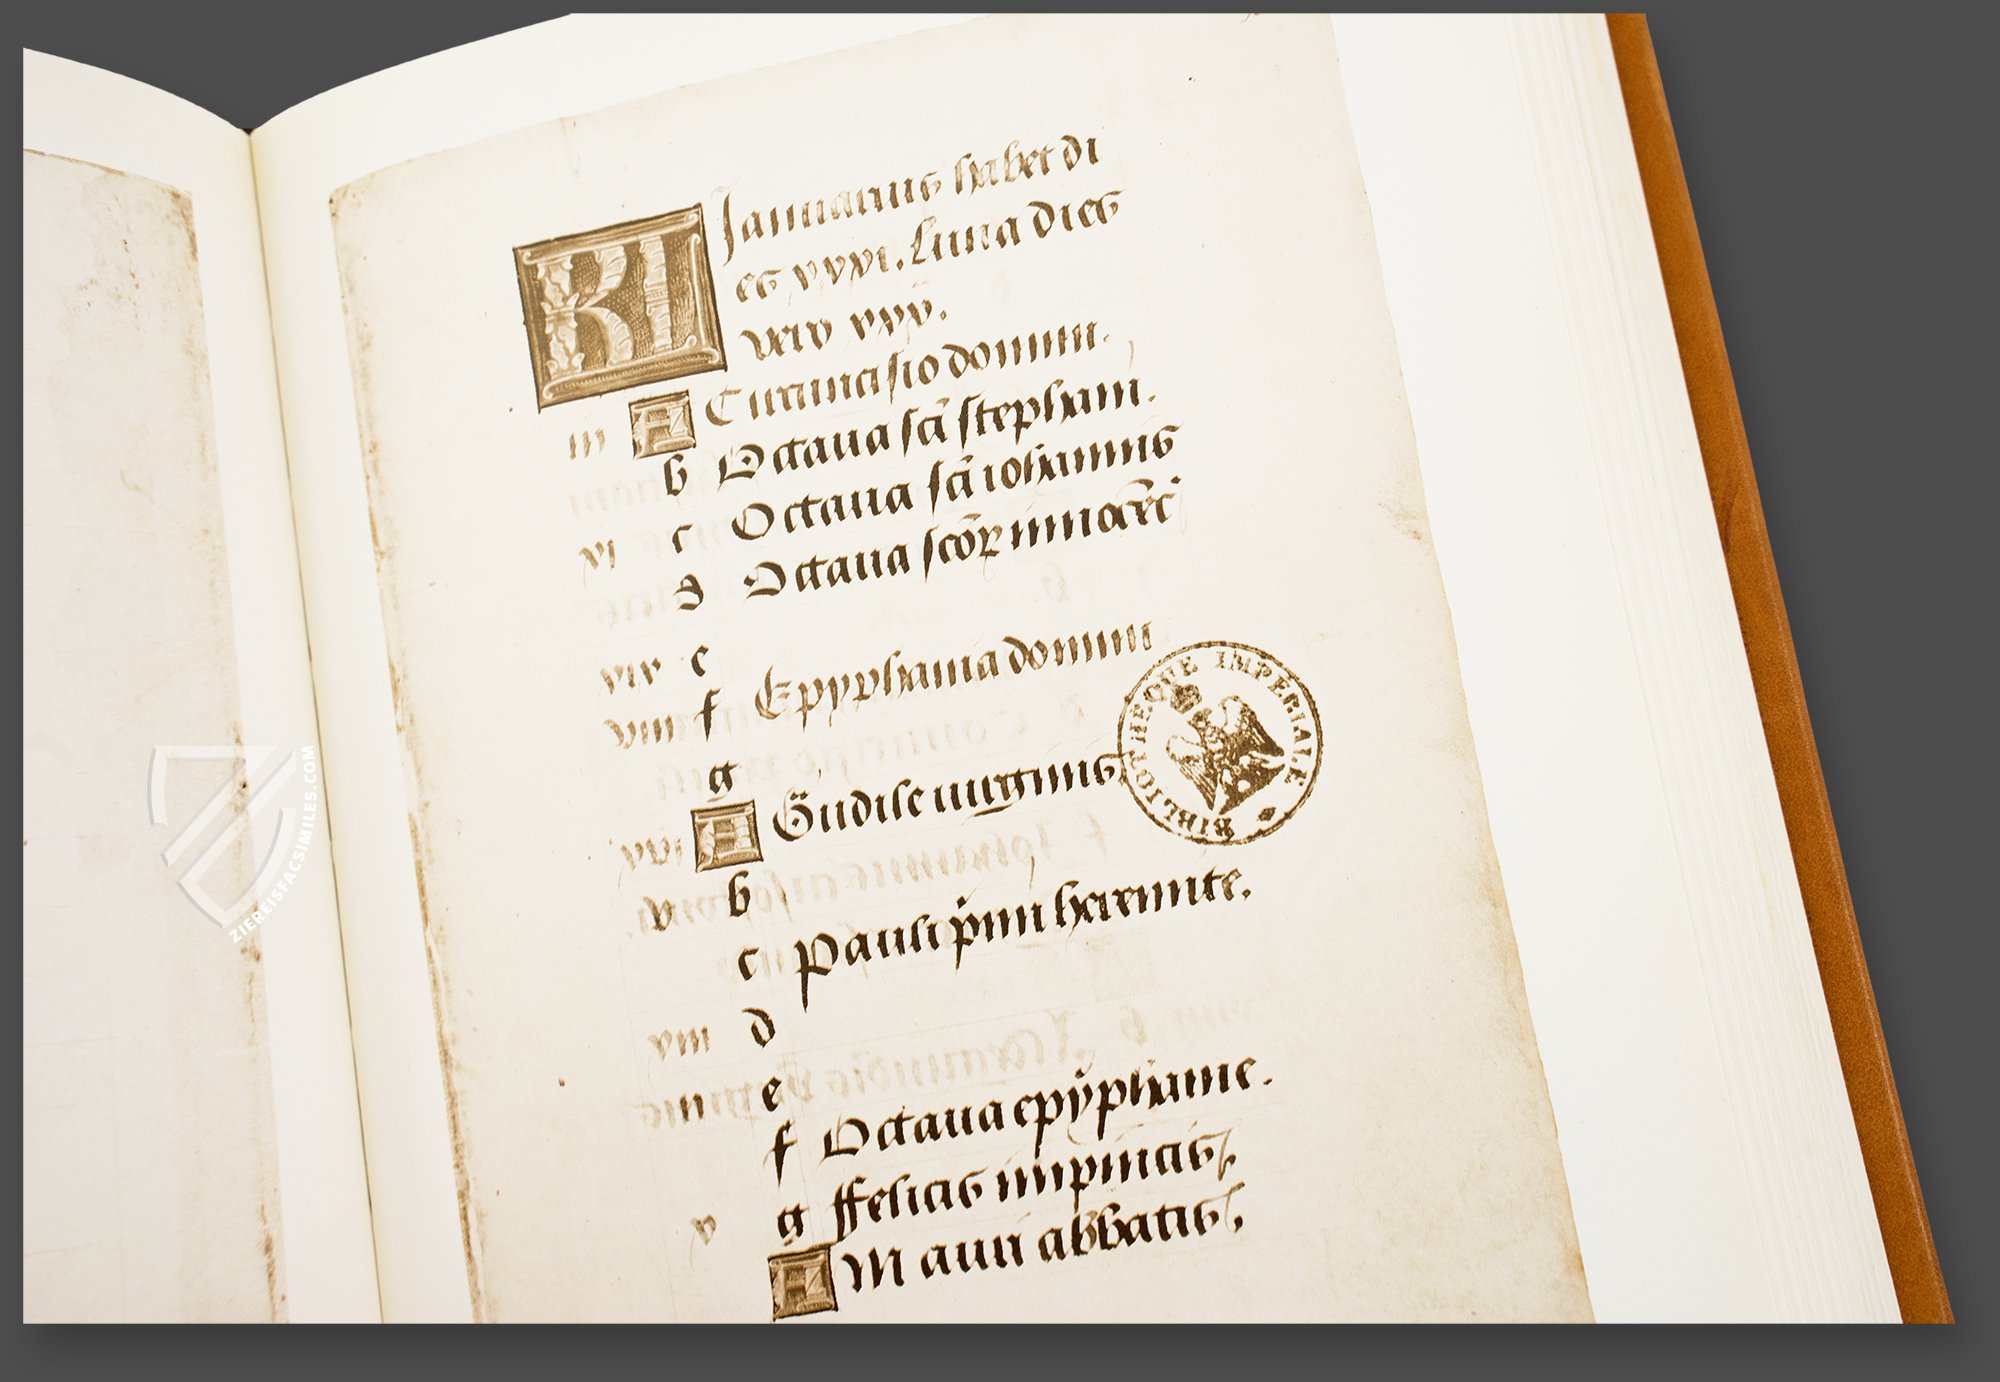 Kl Januarius habet di
es xxxi. Luna dies
vero xxx.
iii A Circumcisio domini.
b Octaua scī stephani.
xi c Octaua scī iohannis
d Octaua scōꝝ innocēt
xix e
viii f Epyphania domini
g
xvi A Gudile uirginis
v b
c Pauli pimi heremite.
xiii d
ii e
f Octaua epyphanie.
x g ffelicis in pincis
A Mauri abbatis
BIBLIOTHÈQUE IMPÉRIALE
ZIEREISFACSIMILES.COM